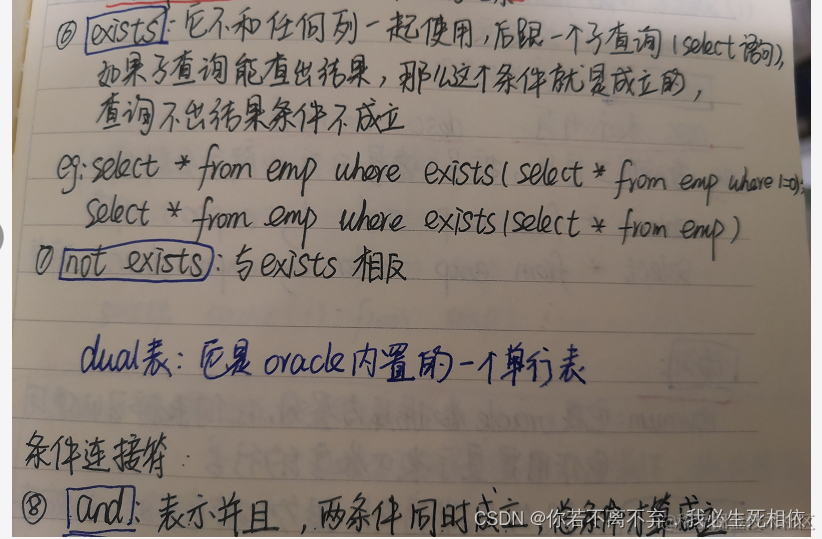 ⑥ exists:它不和任何列一起使用,后跟一个子查询(select 语句),
如果子查询能查出结果,那么这个条件就是成立的,
查询不出结果条件不成立
eg:select * from emp where exists(select * from emp where 1=0);
select * from emp where exists(select * from emp)
⑦ not exists:与exists 相反
dual表:它是 oracle内置的一个单行表
条件连接符:
⑧ and:表示并且,两条件同时成立,总条件才算成立
CSDN @你若不离不弃,我必生死相依